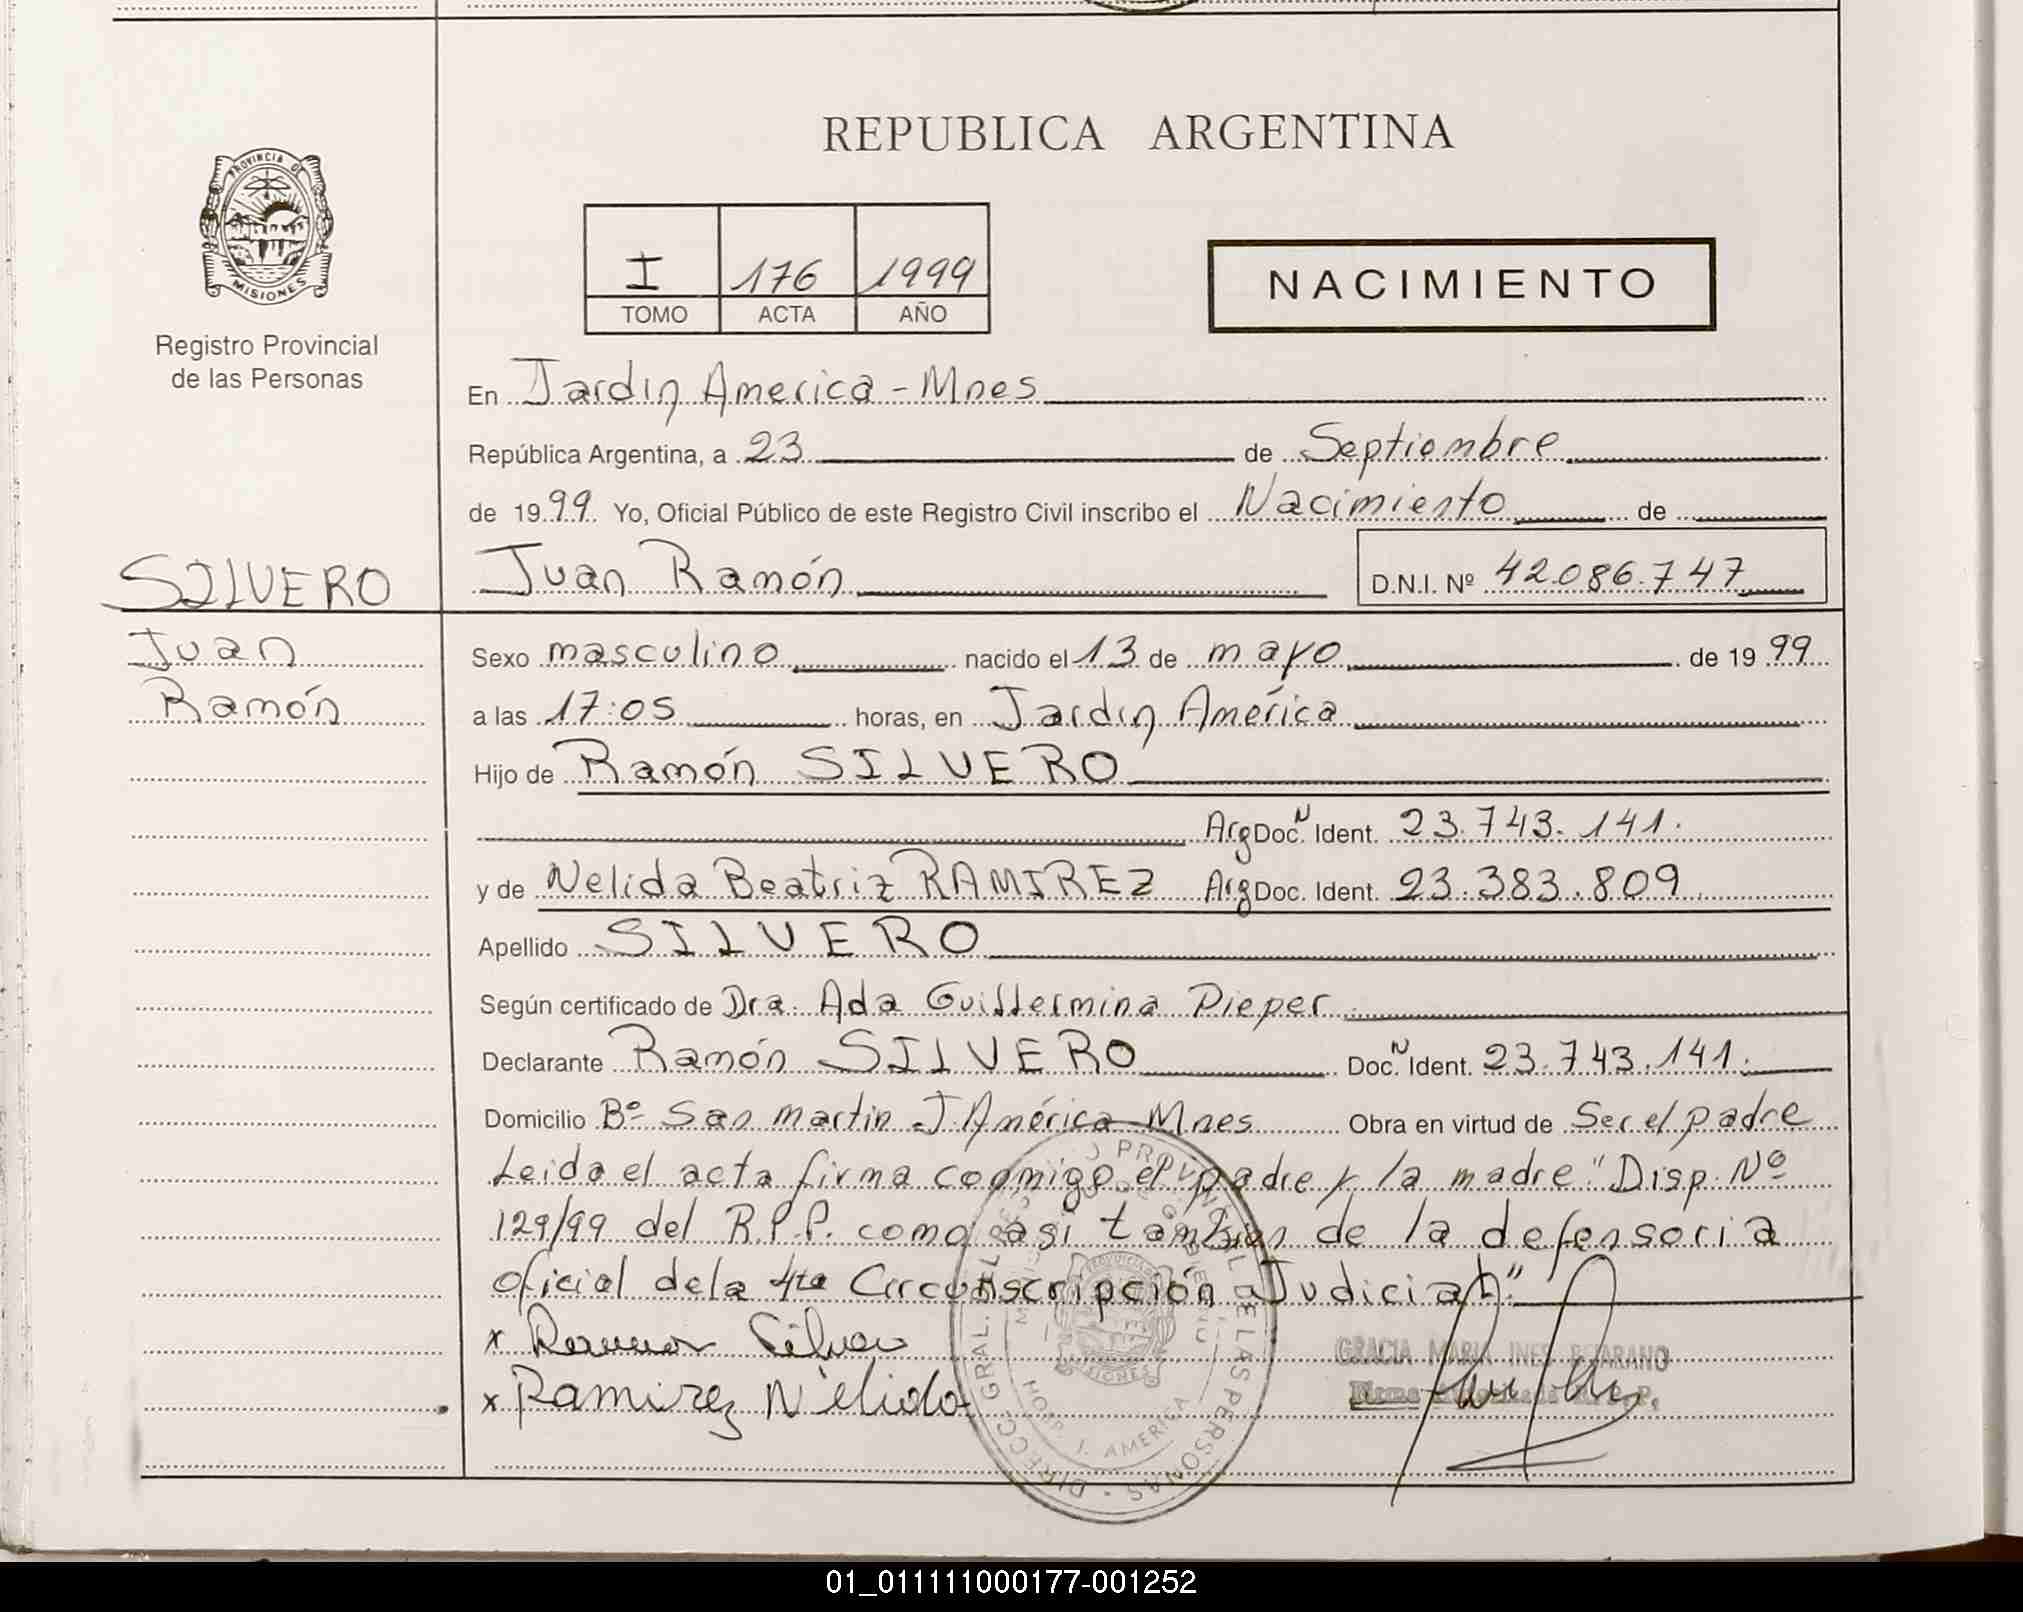 REPUBLICA ARGENTINA
PROVINCIA DE
MISIONES
Registro Provincial
de las Personas
I 176 1999
TOMO ACTA AÑO
NACIMIENTO
En Jardin America - Mnes
República Argentina, a 23 de Septiembre
de 1999 Yo, Oficial Público de este Registro Civil inscribo el Nacimiento de
SILVERO Juan Ramón D.N.I. Nº 42.086.747
Juan
Ramón
Sexo masculino nacido el 13 de mayo de 1999
a las 17:05 horas, en Jardin América
Hijo de Ramón SILVERO
Arg Doc. N Ident. 23.743.141.
y de Nelida Beatriz RAMIREZ Arg Doc. Ident. 23.383.809
Apellido SILVERO
Según certificado de Dra. Ada Guillermina Pieper
Declarante Ramón SILVERO Doc. N Ident. 23.743.141.
Domicilio Bº San Martin - J. América - Mnes Obra en virtud de Ser el padre
Leida el acta firma conmigo el padre y la madre "Disp. Nº
129/99 del R.P.P. como asi tambien de la defensoria
oficial dela 4ta Circunscripción Judicial"
x Ramon Silvero
x Ramirez Nélida
GRACIA MARIA INES BEJARANO
Firma Autorizada R.P.P.
HOSP. J. AMERICA
01_011111000177-001252